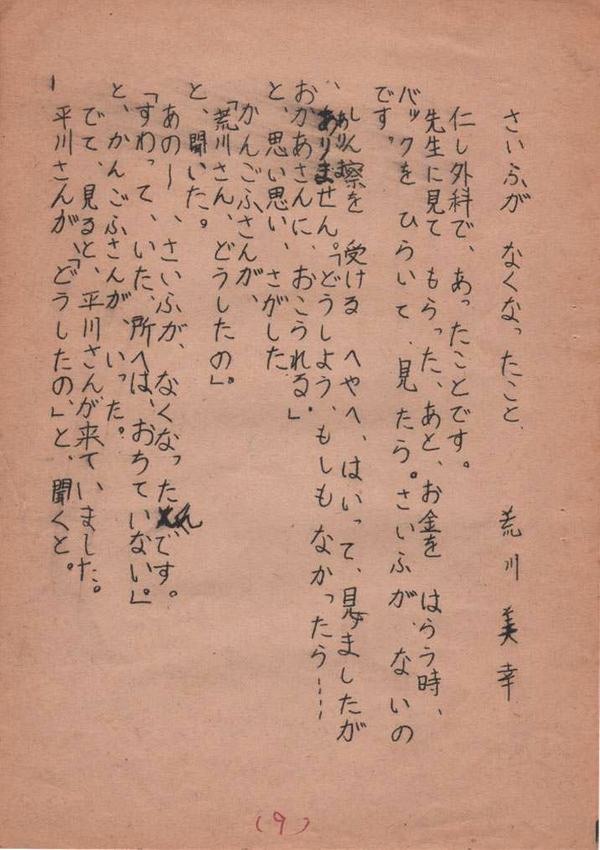 さいふが なくなったこと、 荒川美幸
仁し外科で、あったことです。
先生に見て もらった、あと、お金を はらう時、
バックを ひらいて、見たら。さいふが、ないの
です。
しん察を 受ける へやへ、はいって、見ましたが
、ありません。「どうしよう、もしも なかったら……
おかあさんに、おこうれる。」
と、思い思い、さがした。
かんごふさんが、
「荒川さん、どうしたの」。
と、聞いた。
あのー、さいふが、なくなったんです。
「すわって、いた、所へは、おちていない。」
と、かんごふさんが、いった。
でて、見ると、平川さんが来ていました。
平川さんが、「どうしたの」、と、聞くと。
(9)